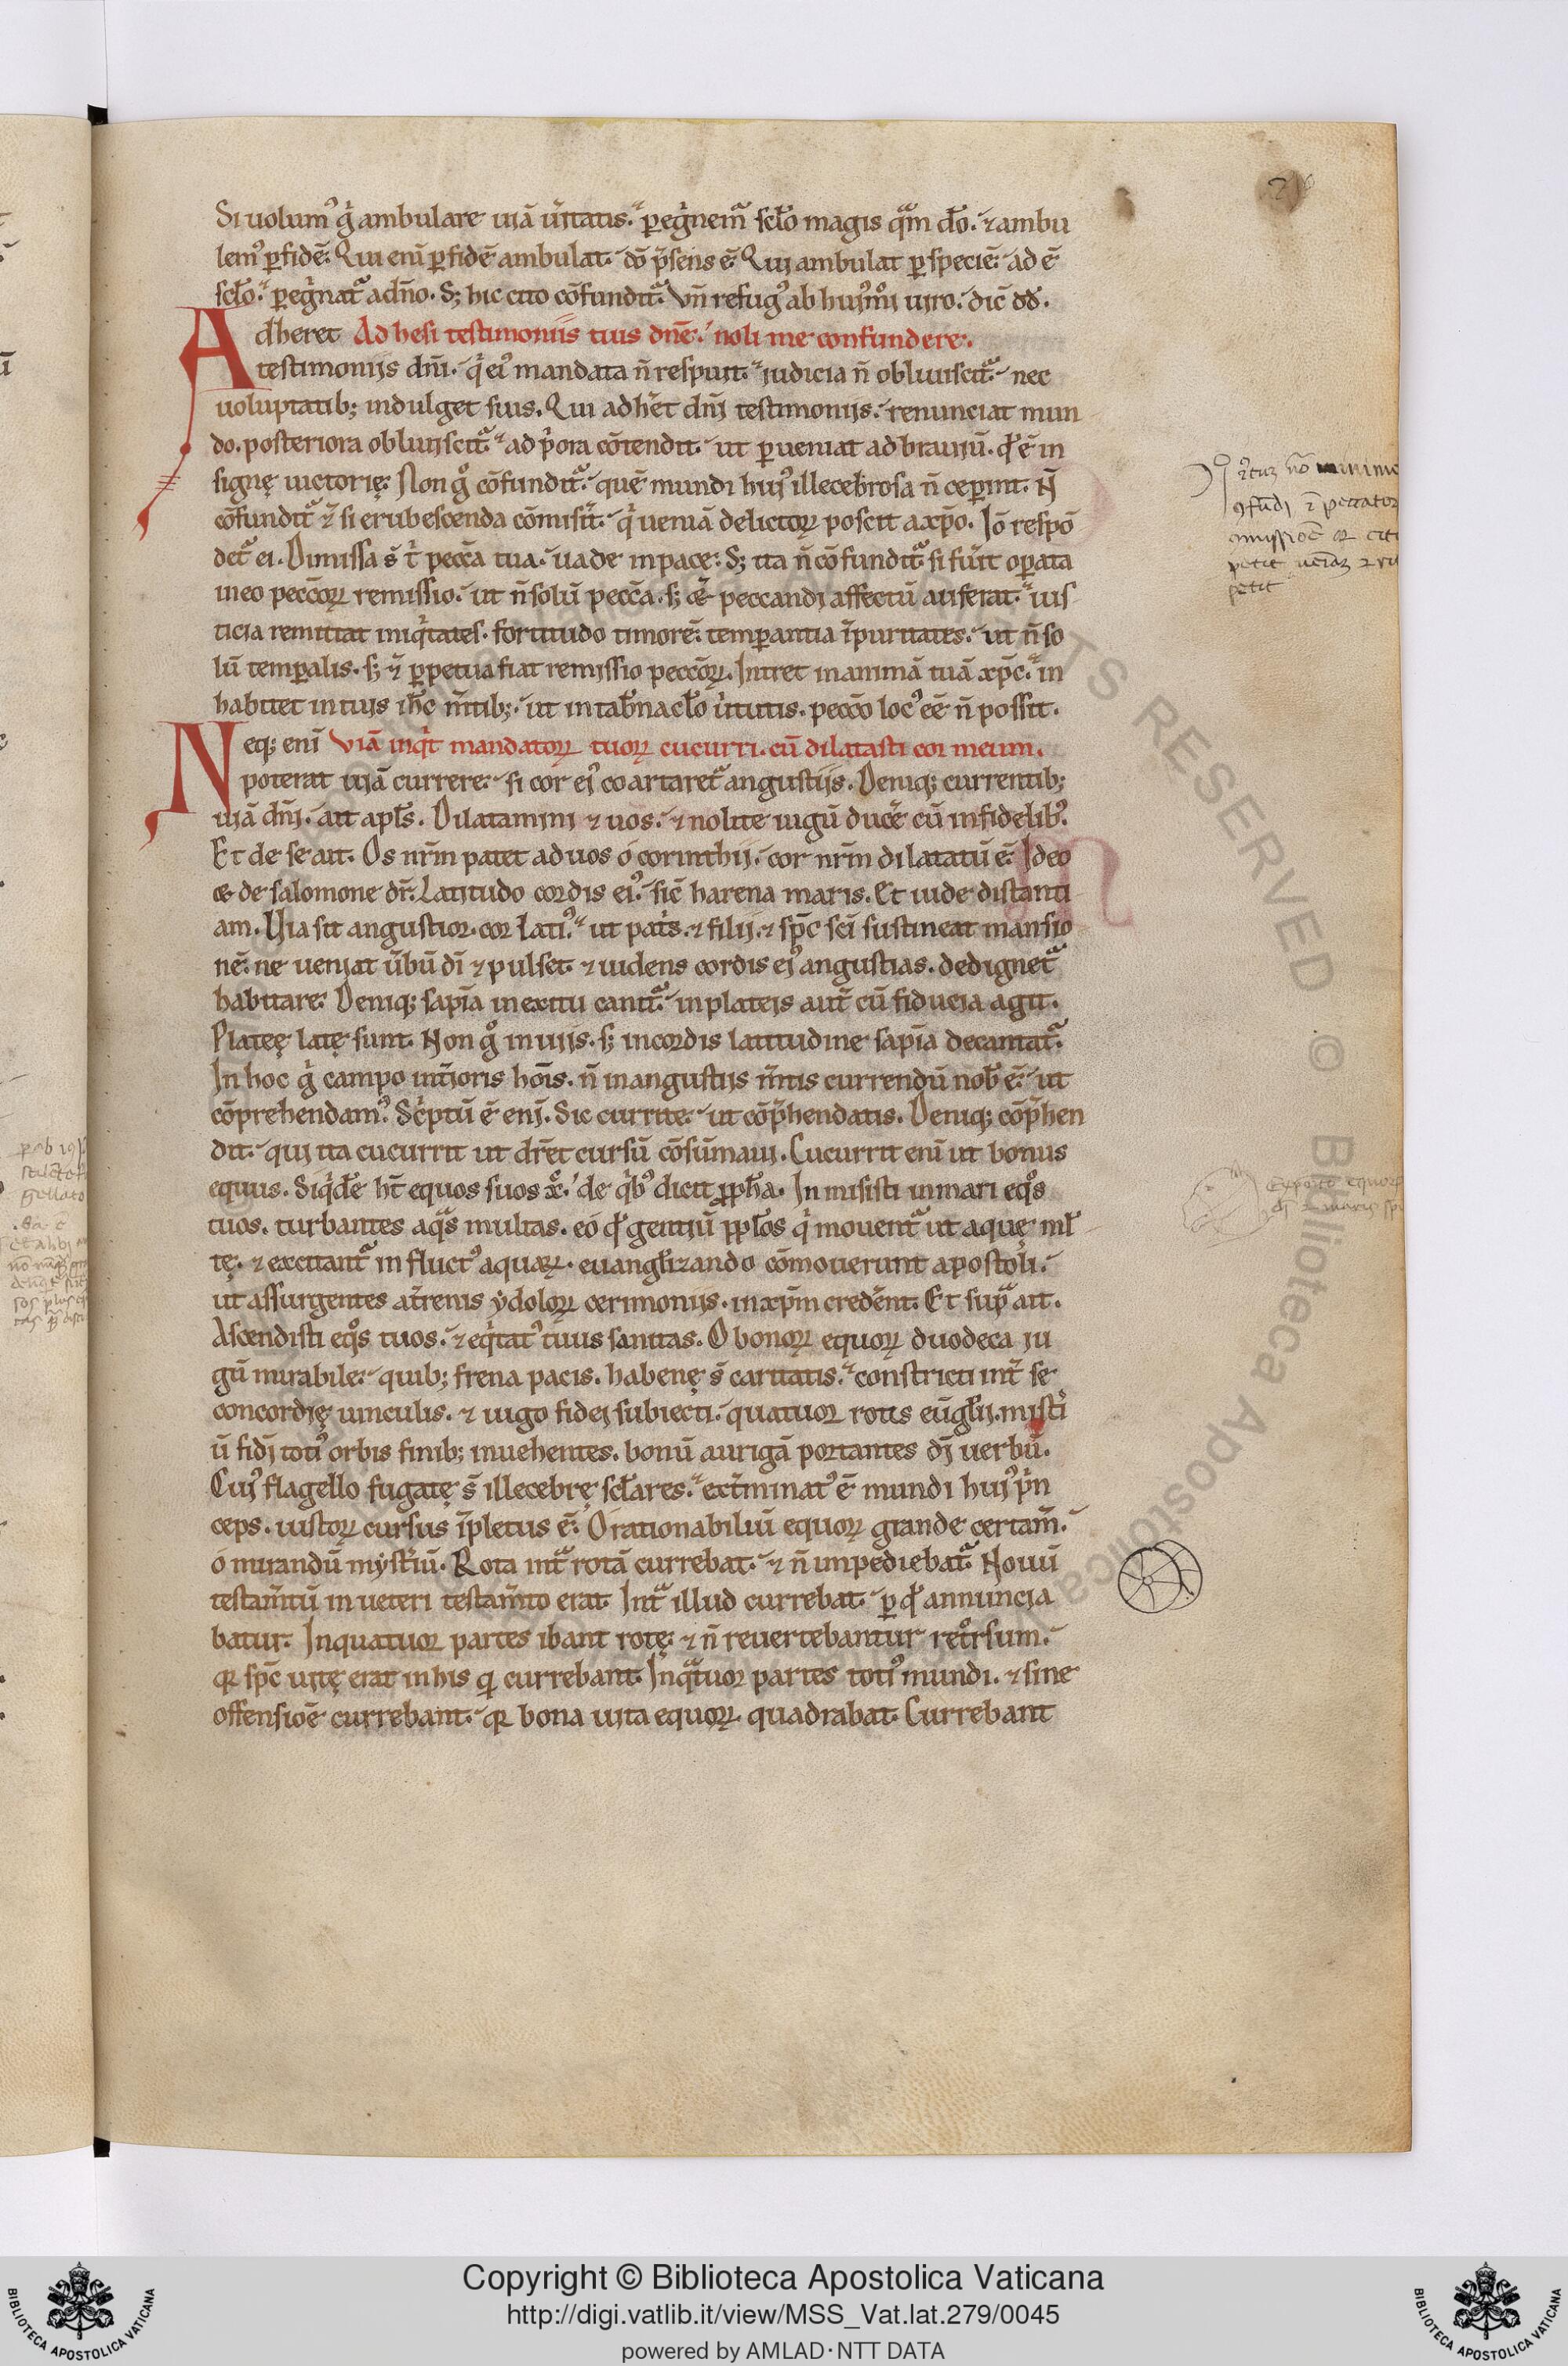 Si uolumꝰ g̊ ambulare uiā ūitatis. peg̊nemᷓ sc̄lo magis qᷓm dn̄o. ⁊ ambu
lemꝰ ꝑ fidē. Qui eni ꝑ fidē ambulat. dō p̄sens ē. Qui ambulat ꝑ speciē. ad ē
sc̄lo. ꝑeg̊natᷓ a dn̄o. Sꝫ hic cito cōfunditᷓ. Vn̄ refugꝰ ab huiꝰmōi uiro. dic̄ dd̄.
Adheret Adhesi testimoniis tuis dn̄e. noli me confundere.
testimoniis dn̄i. qͥ eiꝰ mandata n̄ respuit. iudicia n̄ obliuiscitᷓ. nec
uoluptatibꝫ indulget suis. Qui adhꝫet dn̄i testimoniis. renunciat mun
do. posteriora obliuiscitᷓ. ad pͥora cōtendit. ut ꝑueniat ad brauiū. qd̄ ē in
signę uictorię. Non g̊ cōfunditᷓ. quē mundi huiꝰ illecebrosa n̄ ceperint. N̄
cōfunditᷓ ⁊ si erubescenda cōmisit. qͥ ueniā delictoꝝ poscit a xp̄o. Iō respō
detᷓ ei. Dimissa s̄t tͥ pecc̄a tua. uade in pace. Sꝫ ita n̄ cōfunditᷓ si fūit oꝑata
in eo pecc̄oꝝ remissio. ut n̄ solū pecc̄a. sꝫ ⁊ peccandi affectū auferat. ius
ticia remittat iniqͥtates. fortitudo timorē. temperantia īpuritates. ut n̄ so
lū temꝑalis. sꝫ ⁊ ꝑpetua fiat remissio pecc̄oꝝ. Intret in animā tuā xp̄c. in
habitet in tuis ih̄c m̄tibꝫ. ut in tab̄nac̄lo ūtutis. pecc̄o locꝰ ēe n̄ possit.
Neqꝫ eni Viā inqͥt mandatoꝝ tuoꝝ cucurri. cū dilatasti cor meum.
poterat uiā currere. si cor eiꝰ coartaretᷓ angustiis. Deniqꝫ currentibꝫ
uiā dn̄i. ait apl̄s. Dilatamini ⁊ uos. ⁊ nolite iugū ducē cū infidelibꝰ.
Et de se ait. Os nr̄m patet ad uos ó corinthii. cor nr̄m dilatatū ē. Ideo
& de salomone dr̄. Latitudo cordis eiꝰ. sic̄ harena maris. Et uide distanti
am. Via sit angustior. cor latiꝰ. ut patͥs. ⁊ filii. ⁊ sp̄c sc̄i sustineat mansio
nē. ne ueniat ūbū dī ⁊ pulset. ⁊ uidens cordis eiꝰ angustias. dedignetᷓ
habitare. Deniqꝫ sapīa in exitu canitᷓ. in plateis aut̄ cū fiducia agit.
Plateę latę sunt. Non g̊ in uiis. sꝫ in cordis latitudine sapīa decantatᷓ.
In hoc g̊ campo int̄ioris hōis. n̄ in angustiis m̄tis currendū nob̄ ē. ut
cōprehendamꝰ. Scͥptū ē enī. Sic currite. ut cōp̄hendatis. Deniqꝫ cōp̄hen
dit. qui ita cucurrit ut dr̄et cursū cōsūmaui. Cucurrit eni ut bonus
equus. Siqͥdē ht̄ equos suos xp̄c. de qͥbꝰ dicit ꝓph̄a. In misisti in mari eqͦs
tuos. turbantes aqᷓs multas. eó qd̄ gentiū ppl̄os qͥ mouentᷓ ut aquę ml̄
tę. ⁊ excitantᷓ in fluctꝰ aquaꝝ. euangl̄izando cōmouerunt apostoli.
ut assurgentes at̄renis ydoloꝝ cerimoniis. in xp̄m credēnt. Et supᷓ ait.
Ascendisti eqͦs tuos. ⁊ eqͥtatꝰ tuus sanitas. O bonoꝝ equoꝝ duodeca iu
gū mirabile. quibꝫ frena pacis. habenę s̄t caritatis. constricti int̄ se
concordię uinculis. ⁊ iugo fidei subiecti. quatuor rotis eūgl̄ii. mistͥ
ū fidī totiꝰ orbis finibꝫ inuehentes. bonū aurigā portantes dī uerbū.
Cuiꝰ flagello fugatę s̄t illecebrę sc̄lares. ext̄minatꝰ ē mundi huiꝰ pͥn
ceps. iustoꝝ cursus īpletus ē. O rationabiliū equoꝝ grande certam̄.
ó mirandū mysťiū. Rota intᷓ rotā currebat. ⁊ n̄ impediebatᷓ. Nouū
testam̄tū in ueteri testam̄to erat. Intᷓ illud currebat. ꝑ qd̄ annuncia
batur. In quatuor partes ibant rotę. ⁊ n̄ reuertebantur retͦrsum.
qꝛ sp̄c uitę erat in his qͥ currebant. In qᷓtuor partes totiꝰ mundi. ⁊ sine
offensiōe currebant. qꝛ bona uita equoꝝ quadrabat. Currebant
Copyright © Biblioteca Apostolica Vaticana
http://digi.vatlib.it/view/MSS_Vat.lat.279/0045
powered by AMLAD·NTT DATA